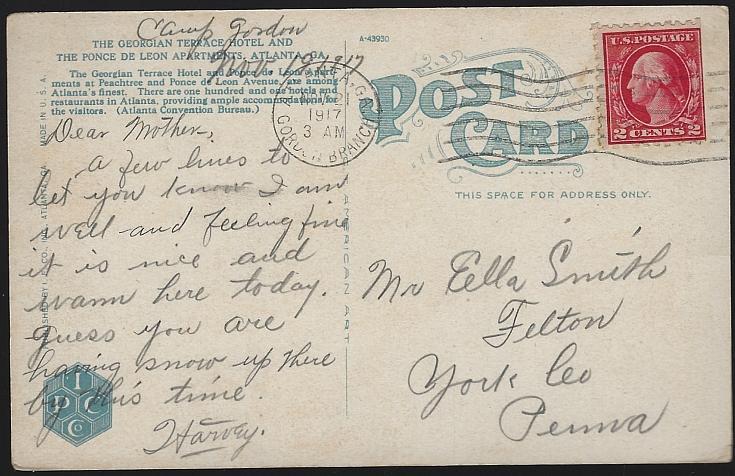 Camp Gordon
Nov 21, 1917
THE GEORGIAN TERRACE HOTEL AND
THE PONCE DE LEON APARTMENTS, ATLANTA, GA.
The Georgian Terrace Hotel and Ponce de Leon Apart-
ments at Peachtree and Ponce de Leon Avenue, are among
Atlanta's finest. There are one hundred and one hotels and
restaurants in Atlanta, providing ample accommodations for
the visitors. (Atlanta Convention Bureau.)
Dear Mother,
a few lines to
let you know I am
well and feeling fine
it is nice and
warm here today.
Guess you are
having snow up there
by this time.
Harvey.
MADE IN U. S. A.
ATLANTA, GA.
AMERICAN ART
I
CO
A-43930
ATLANTA, GA.
NOV 21
1917
3 AM
GORDON BRANCH
POST
CARD
THIS SPACE FOR ADDRESS ONLY.
U.S. POSTAGE
2 CENTS 2
Mr Ella Smith
Felton
York Co
Penna